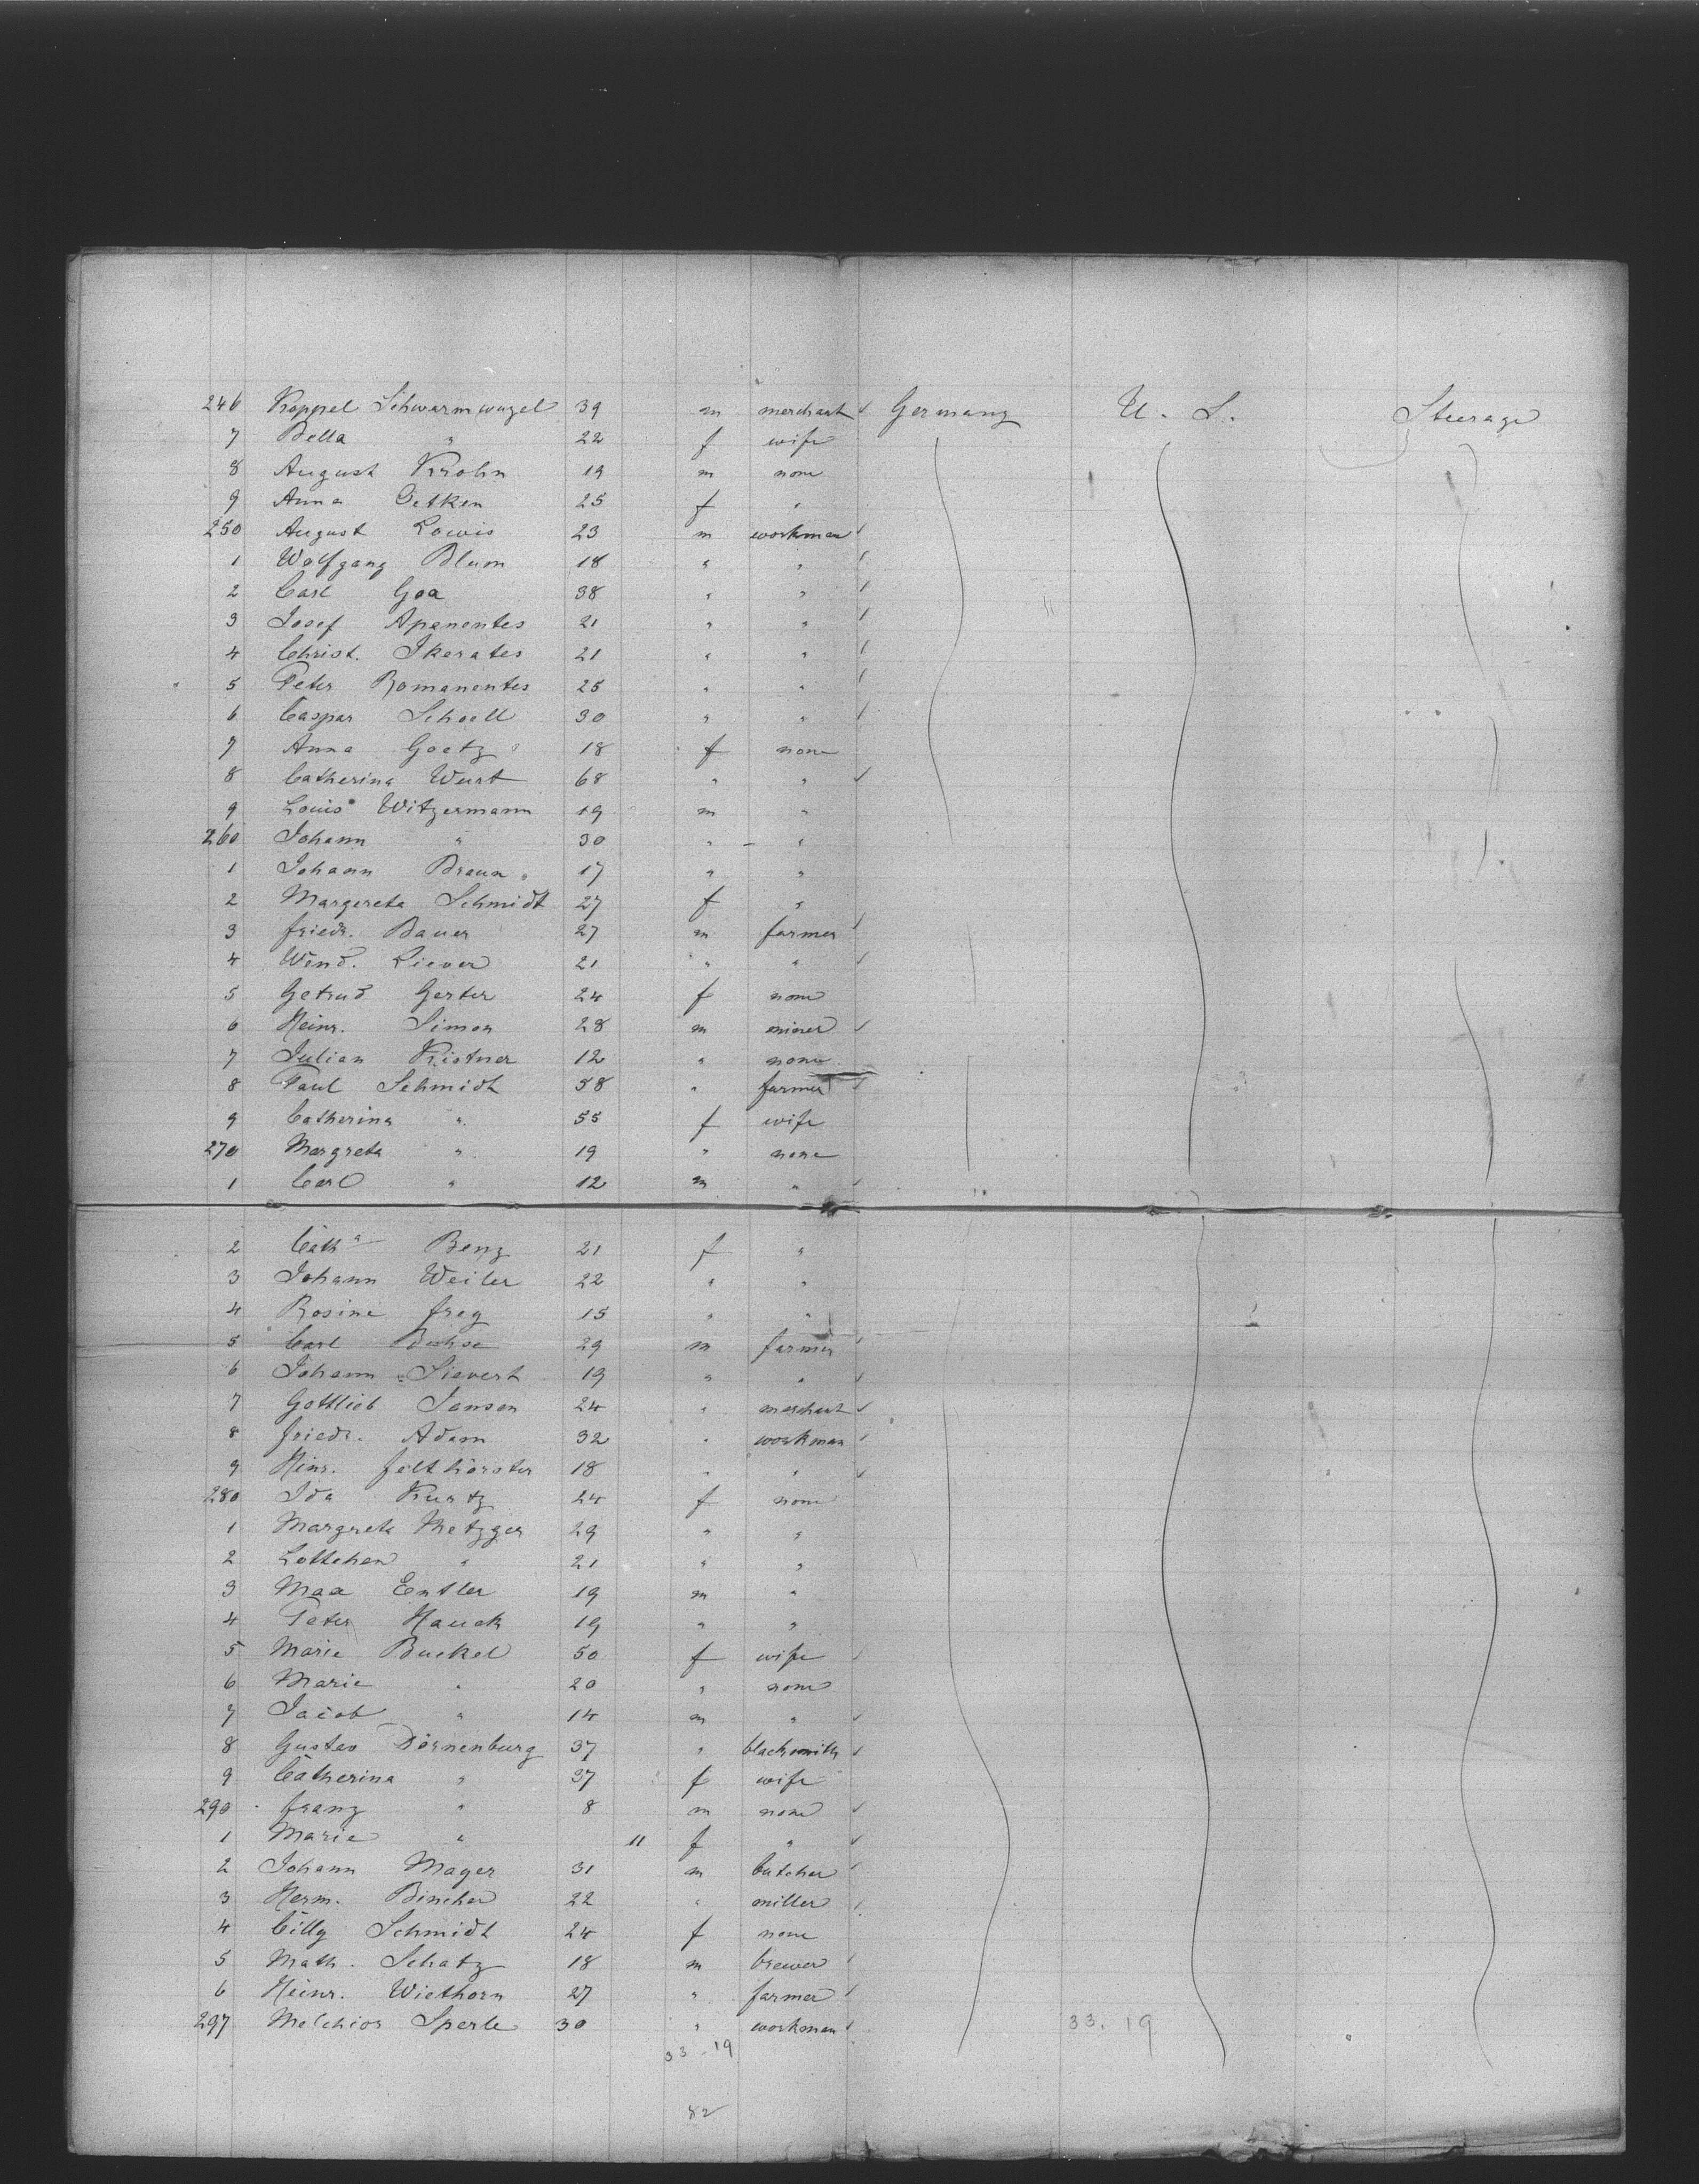 246 Koppel Schwarmwugel 39 m merchant Germany U. S. Steerage
7 Bella " 22 f wife
8 August Krohn 19 m none
9 Anna Oetken 25 f "
250 August Lowis 23 m workman
1 Wolfgang Blum 18 " "
2 Carl Goa 38 " "
3 Josef Apanentes 21 " "
4 Christ. Ikerates 21 " "
5 Peter Romanentes 25 " "
6 Caspar Schoell 30 " "
7 Anna Goetz 18 f none
8 Catherina Wurt 68 " "
9 Louis Witzermann 19 m "
260 Johann " 30 " "
1 Johann Braun 17 " "
2 Margereta Schmidt 27 f "
3 Friedr. Bauer 27 m farmer
4 Wend. Siever 21 " "
5 Getrud Gerter 24 f none
6 Heinr. Simon 28 m miner
7 Julian Kistner 12 " none
8 Paul Schmidt 58 " farmer
9 Catherina " 55 f wife
270 Margreta " 19 " none
1 Carl " 12 m "
2 Cath a Benz 21 f "
3 Johann Weiler 22 " "
4 Rosine Frey 15 " "
5 Carl 29 m farmer
6 Johann Sievert 19 " "
7 Gottlieb Jansen 24 " merchant
8 Friedr. Adam 32 " workman
9 Heinr. Felthörster 18 " "
280 Ida Kurtz 24 f none
1 Margreta Metzger 29 " "
2 Lottchen " 21 " "
3 Max Entler 19 m "
4 Peter Hauck 19 " "
5 Marie Buckel 50 f wife
6 Marie " 20 " none
7 Jacob " 14 m "
8 Gustav Dörnenburg 37 " blacksmith
9 Catherina " 37 f wife
290 Franz " 8 m none
1 Marie " 11 f "
2 Johann Mager 31 m butcher
3 Herm. Bincher 22 " miller
4 Cilly Schmidt 24 f none
5 Math. Schatz 18 m brewer
6 Heinr. Wiethorn 27 " farmer
297 Melchior Sperle 30 " workman 33.19
33.19
82